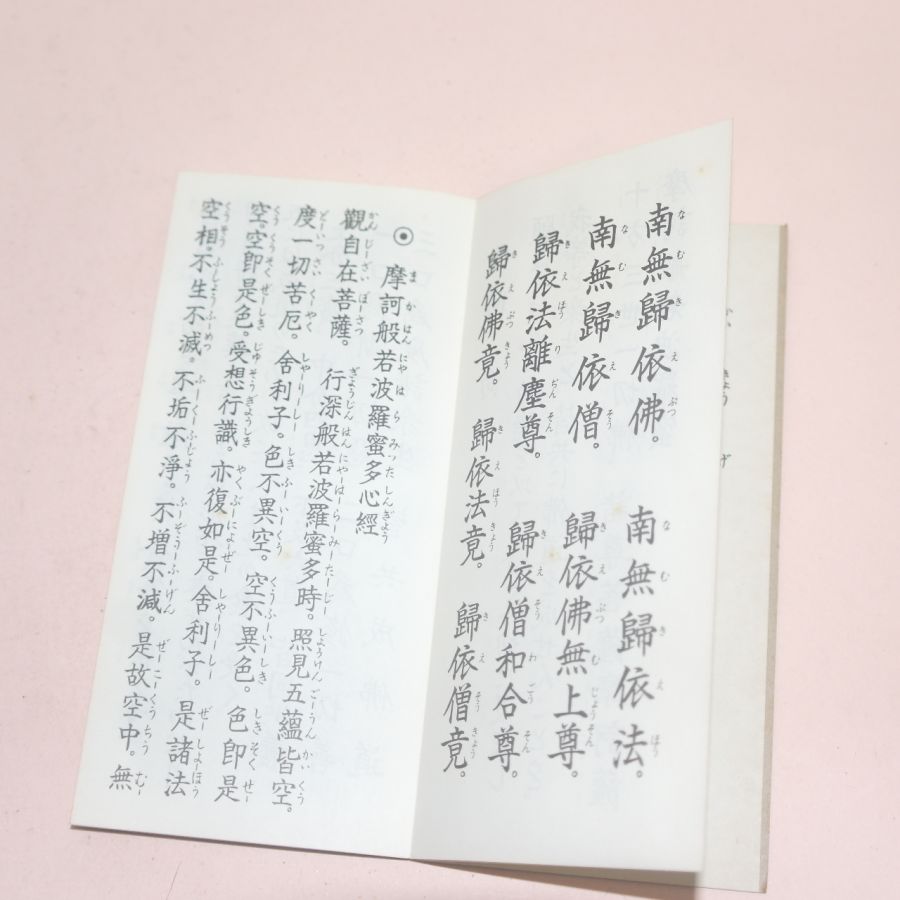 南無歸依佛。 南無歸依法。
南無歸依僧。 歸依佛無上尊。
歸依法離塵尊。 歸依僧和合尊。
歸依佛竟。 歸依法竟。 歸依僧竟。
◉ 摩訶般若波羅蜜多心經
觀自在菩薩。 行深般若波羅蜜多時。 照見五蘊皆空。
度一切苦厄。 舍利子。 色不異空。 空不異色。 色即是
空。空即是色。 受想行識。 亦復如是。 舍利子。 是諸法
空相。 不生不滅。 不垢不淨。 不增不減。 是故空中。 無